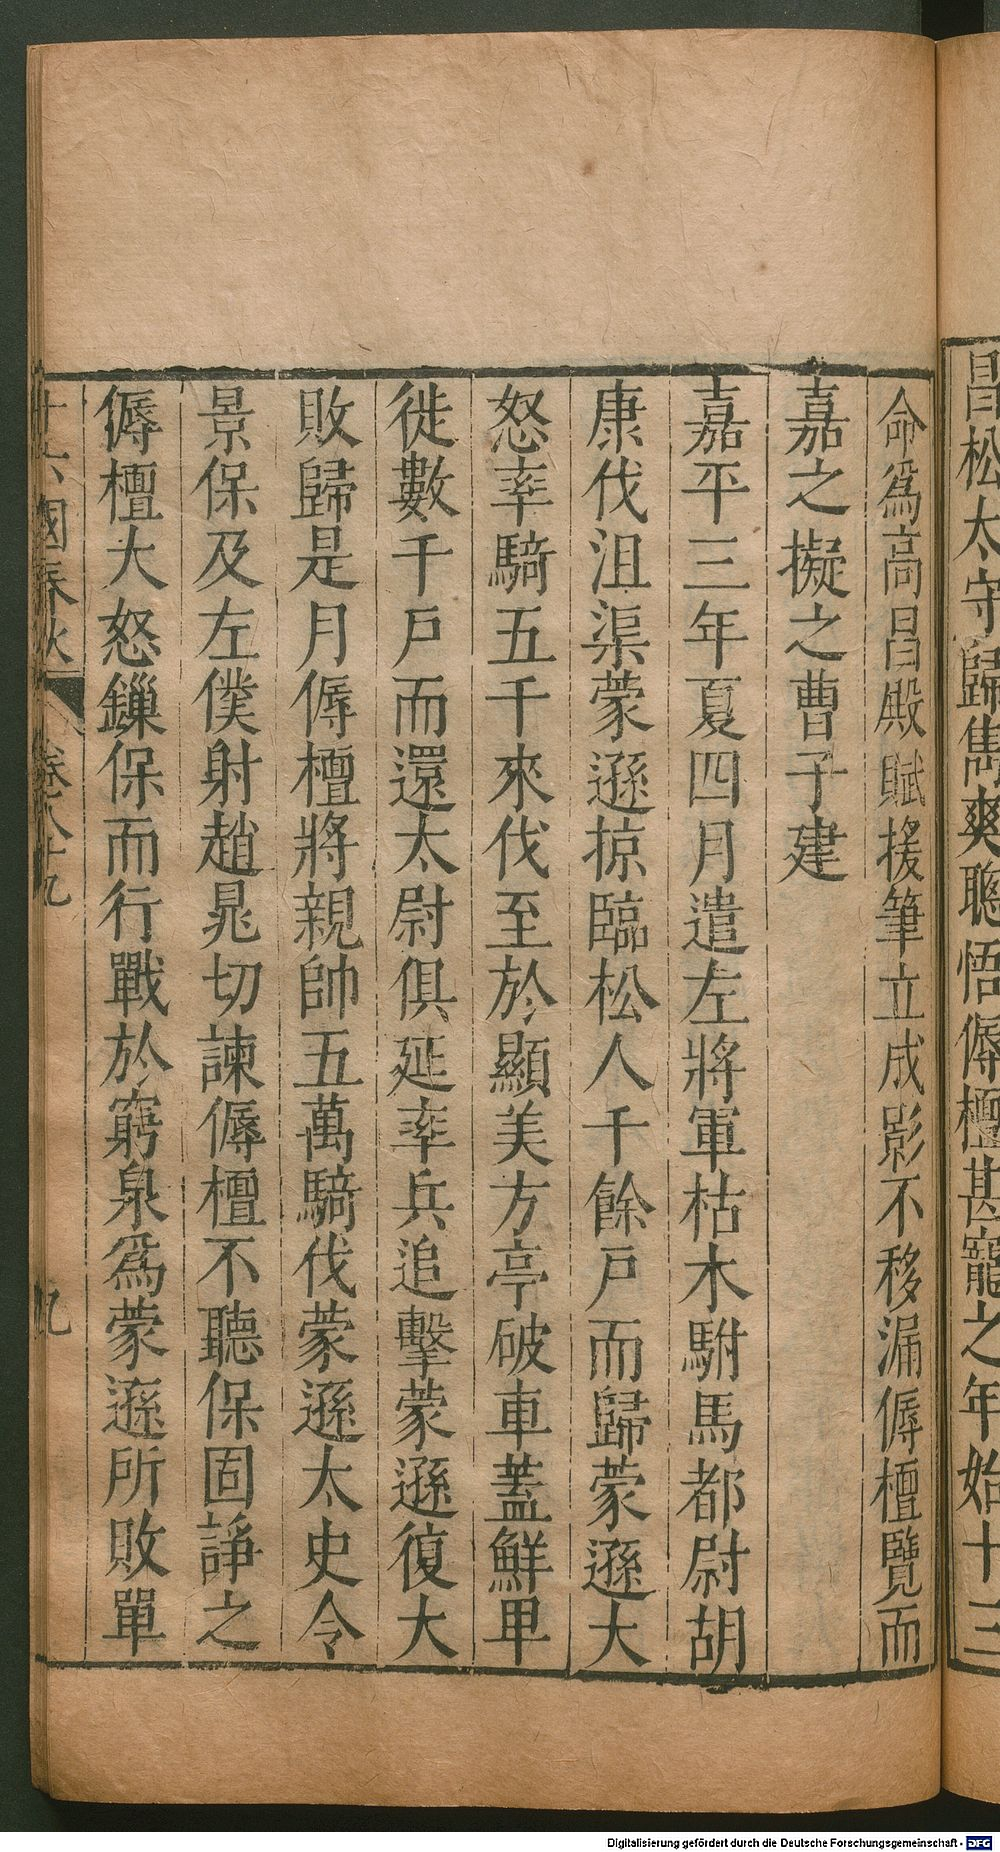 昌松太守歸雋爽聰悟傉檀甚寵之年始十三
命爲高昌殿賦援筆立成影不移漏傉檀覽而
嘉之擬之曹子建
嘉平三年夏四月遣左將軍枯木駙馬都尉胡
康伐沮渠蒙遜掠臨松人千餘戸而歸蒙遜大
怒率騎五千來伐至於顯美方亭破車蓋鮮甲
徙數千戸而還太尉俱延率兵追擊蒙遜復大
敗歸是月傉檀將親帥五萬騎伐蒙遜太史令
景保及左僕射趙晁切諫傉檀不聽保固諍之
傉檀大怒鏁保而行戰於窮泉爲蒙遜所敗單
十六國春秋 卷八十九 九
Digitalisierung gefördert durch die Deutsche Forschungsgemeinschaft - DFG